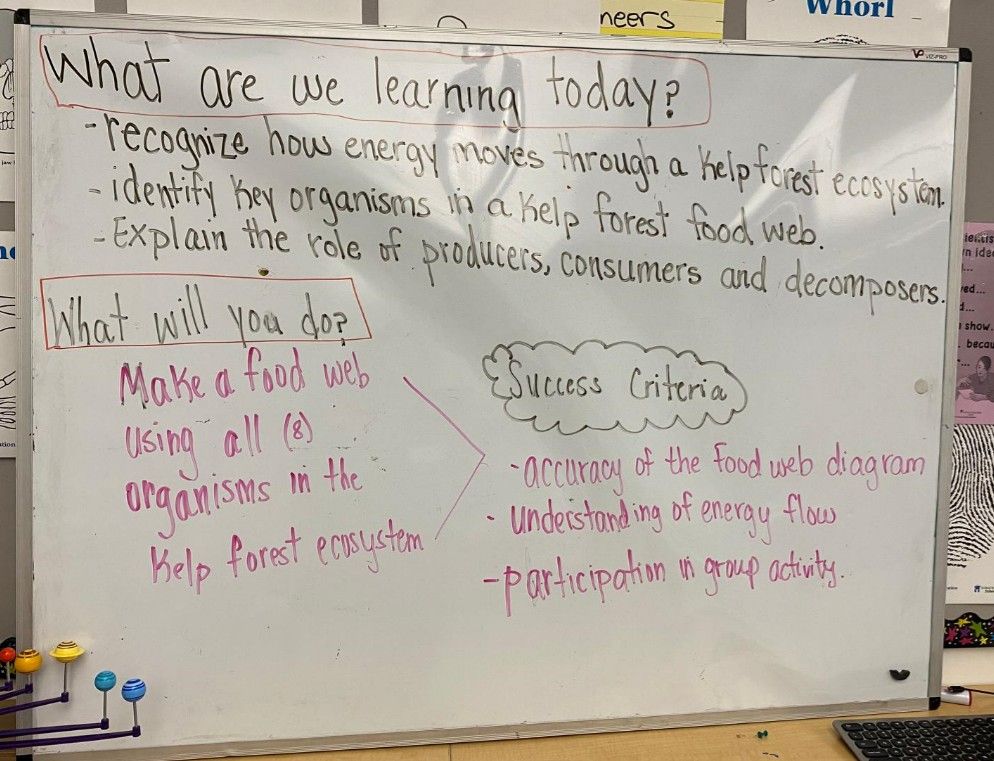 neers
Whorl
VIZ-PRO
What are we learning today?
- recognize how energy moves through a Kelp forest ecosystem.
- identify key organisms in a Kelp forest food web.
- Explain the role of producers, consumers and decomposers.
What will you do?
Make a food web
using all (8)
organisms in the
Kelp forest ecosystem
Success Criteria
- accuracy of the food web diagram
- understanding of energy flow
- participation in group activity.
jaw
show.
becau